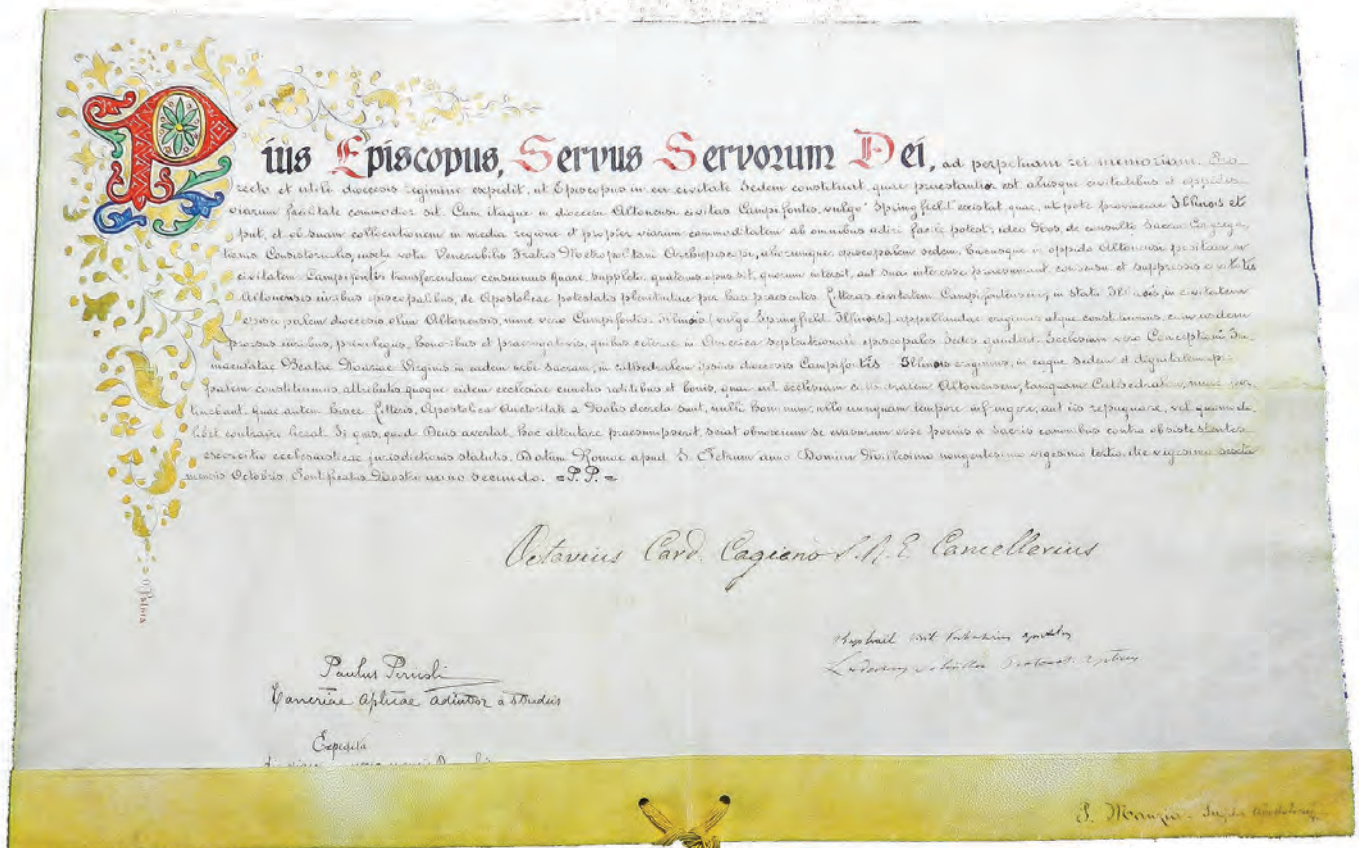 Pius Episcopus, Servus Servorum Dei, ad perpetuam rei memoriam. Pro
recto et utili diocesis regimine expedit, ut Episcopus in ea civitate Sedem constituat, quae praestantior est aliisque civitatibus et oppidis
viarum facilitate commodior sit. Cum itaque in diocesi Altonensi civitas Campifontis, vulgo "Springfield" existat quae, ut pote provinciae Illinois et
put, et ob suam collocationem in media regione et propter viarum commoditatem ab omnibus adiri facile potest; ideo Nos, de consulto Sacrae Congrega
tionis Consistorialis, iuxta vota Venerabilis Fratris Metropolitani Archiepiscopi, episcopalem sedem, hucusque in oppido Altonensi positam in
civitatem Campifontis transferendam censuimus quare, suppleto, quatenus opus sit, quorum intersit, aut sua interesse praesumant consensu et suppressis civitatis
Altonensis iuribus episcopalibus, de Apostolicae potestatis plenitudine per has praesentes Litteras civitatem Campifontensem, in statu Illinois, in civitatem
episcopalem diocesis olim Altonensis, nunc vero Campifontis-Illinois (vulgo Springfield Illinois) appellandae erigimus atque constituimus, cum iisdem
prorsus iuribus, privilegiis, honoribus et praerogativis, quibus ceterae in America septentrionali episcopales Sedes gaudent. Ecclesiam vero Conceptionis Im
maculatae Beatae Mariae Virginis in eadem urbe sacram, in cathedralem ipsius diocesis Campifontis - Illinois erigimus, in eaque Sedem et dignitatem epi
palem constituimus attributis quoque eidem ecclesiae cunctis reditibus et bonis, quae ad ecclesiam Altonensem, tamquam Cathedralem, nunc per
tinebant. quae autem hisce Litteris, Apostolica Auctoritate a Nobis decreta sunt, nulli hominum, ullo unquam tempore infringere, aut iis repugnare, vel quomodo
libet contraire liceat. Si quis, quod Deus avertat, hoc attentare praesumpserit, sciat obnoxium se evasurum esse poenis a sacris canonibus contra obsistentes
exercitio ecclesiasticae jurisdictionis statutis. Datum Romae apud S. Petrum anno Domini Millesimo nongentesimo vigesimo tertio, die vigesima sexta
mensis Octobris Pontificatus Nostri anno secundo. =P.P.=
Octavius Card. Cagiano S. R. E. Cancellarius
Paulus Pericoli
Expedita